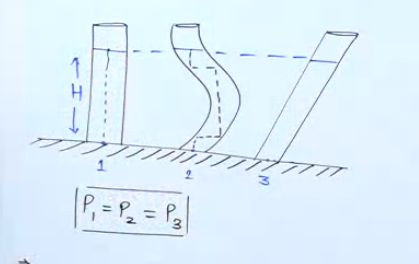 H
1
2
3
P₁ = P₂ = P₃